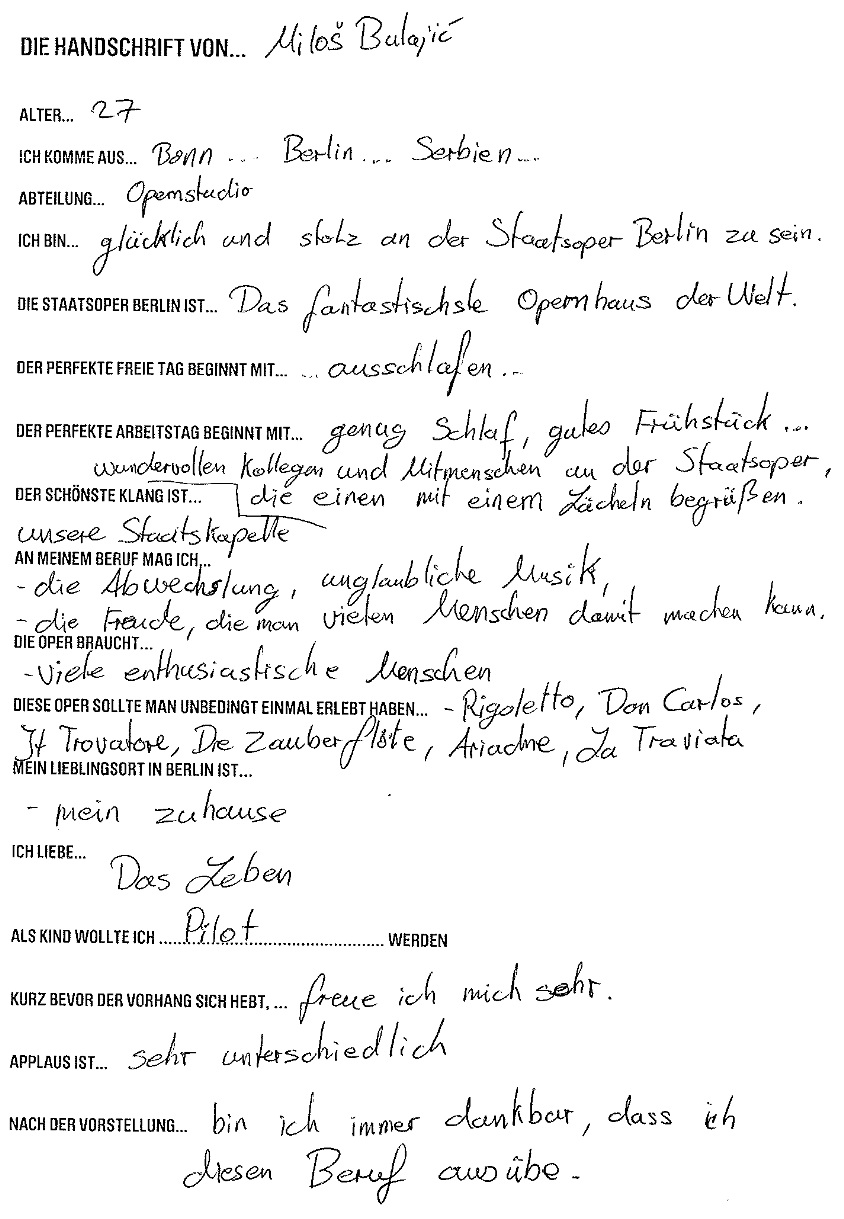 DIE HANDSCHRIFT VON... Miloš Bulajić
ALTER... 27
ICH KOMME AUS... Bonn ... Berlin ... Serbien ...
ABTEILUNG... Opernstudio
ICH BIN... glücklich und stolz an der Staatsoper Berlin zu sein.
DIE STAATSOPER BERLIN IST... Das fantastischste Opernhaus der Welt.
DER PERFEKTE FREIE TAG BEGINNT MIT... ... ausschlafen ...
DER PERFEKTE ARBEITSTAG BEGINNT MIT... genug Schlaf, gutes Frühstück ...
wundervollen Kollegen und Mitmenschen an der Staatsoper,
die einen mit einem Lächeln begrüßen.
DER SCHÖNSTE KLANG IST...
unsere Staatskapelle
AN MEINEM BERUF MAG ICH...
- die Abwechslung, unglaubliche Musik,
- die Freude, die man vielen Menschen damit machen kann.
DIE OPER BRAUCHT...
- Viele enthusiastische Menschen
DIESE OPER SOLLTE MAN UNBEDINGT EINMAL ERLEBT HABEN... - Rigoletto, Don Carlos,
Il Trovatore, Die Zauberflöte, Ariadne, La Traviata
MEIN LIEBLINGSORT IN BERLIN IST...
- mein zuhause
ICH LIEBE...
Das Leben
ALS KIND WOLLTE ICH ..... Pilot ..... WERDEN
KURZ BEVOR DER VORHANG SICH HEBT, ... freue ich mich sehr.
APPLAUS IST... sehr unterschiedlich
NACH DER VORSTELLUNG... bin ich immer dankbar, dass ich
diesen Beruf ausübe.